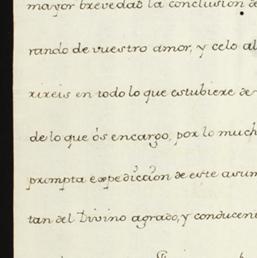 mayor brevedad la conclusion de
rando de vuestro amor, y celo al
rireis en todo lo que estubiere de
de lo que ôs encargo, por lo much
prompta expediccion de este asum
tan del Divino agrado, y conducen